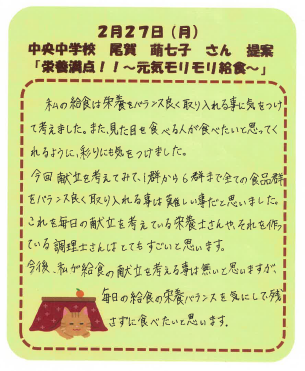 2月27日（月）
中央中学校　尾賀　萌七子　さん　提案
「栄養満点！！～元気モリモリ給食～」
私の給食は栄養をバランス良く取り入れる事に気をつけ
て考えました。また、見た目を食べる人が食べたいと思ってく
れるように、彩りにも気をつけました。
今回献立を考えてみて、1群から6群まで全ての食品群
をバランス良く取り入れる事は難しい事だと思いました。
これを毎日の献立を考えている栄養士さんや、それを作っ
ている調理士さんはとてもすごいと思います。
今後、私が給食の献立を考える事は無いと思いますが、
毎日の給食の栄養バランスを気にして、残
さずに食べたいと思います。